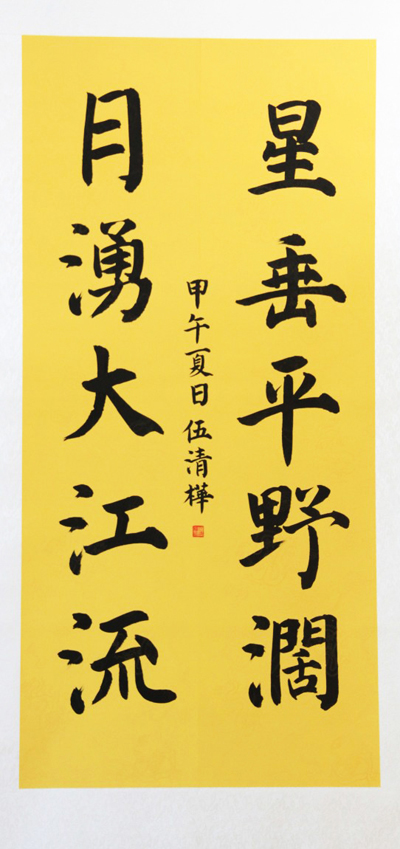 星垂平野濶
月湧大江流
甲午夏日伍清樺